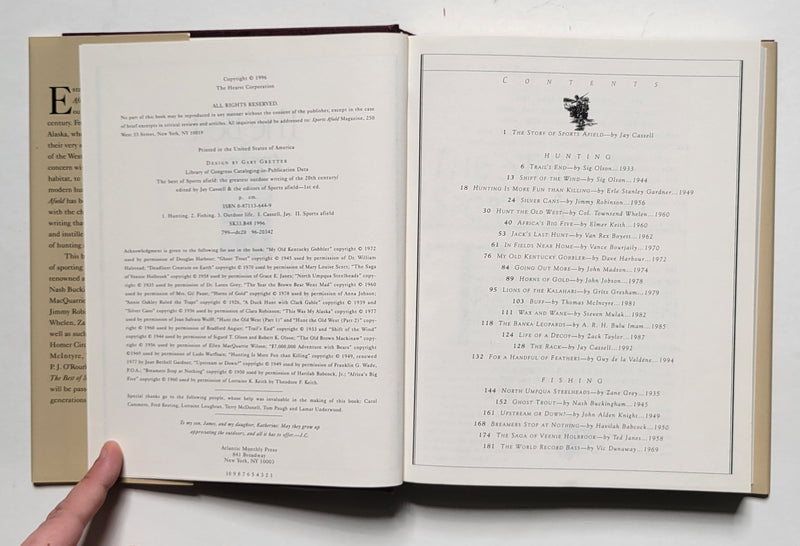 E
Copyright © 1996
The Hearst Corporation
ALL RIGHTS RESERVED.
No part of this book may be reproduced in any manner without the consent of the publisher, except in the case
of brief excerpts in critical reviews and articles. All inquiries should be addressed to: Sports Afield Magazine, 250
West 55 Street, New York, NY 10019
Printed in the United States of America
DESIGN BY GARY GRETTER
Library of Congress Cataloging-in-Publication Data
The best of Sports afield: the greatest outdoor writing of the 20th century/
edited by Jay Cassell & the editors of Sports afield—1st ed.
p. cm.
ISBN 0-87113-644-9
1. Hunting. 2. Fishing. 3. Outdoor life. I. Cassell, Jay. II. Sports afield
SK33.B48 1996
799—dc20 96-20342
Acknowledgment is given to the following for use in the book: "My Old Kentucky Gobbler" copyright © 1972
used by permission of Douglas Harbour; "Ghost Trout" copyright © 1945 used by permission of Dr. William
Halstead; "Deadliest Creature on Earth" copyright © 1970 used by permission of Mary Louise Scott; "The Saga
of Veenie Holbrook" copyright © 1958 used by permission of Grace K. Janes; "North Umpqua Steelheads" copy-
right © 1935 used by permission of Dr. Loren Grey; "The Year the Brown Bear Went Mad" copyright © 1960
used by permission of Mrs. Gil Paust; "Horns of Gold" copyright © 1978 used by permission of Anna Jobson;
"Annie Oakley Ruled the Traps" copyright © 1920s, "A Duck Hunt with Clark Gable" copyright © 1939 and
"Silver Cans" copyright © 1956 used by permission of Clara Robinson; "This Was My Alaska" copyright © 1977
used by permission of Joan Salvato Wulff; "Hunt the Old West (Part 1)" and "Hunt the Old West (Part 2)" copy-
right © 1960 used by permission of Bradford Angier; "Trail's End" copyright © 1933 and "Shift of the Wind"
copyright © 1944 used by permission of Sigurd T. Olson and Robert K. Olson; "The Old Brown Mackinaw" copy-
right © 1956 used by permission of Ellen MacQuarrie Wilson; "$7,000,000 Adventure with Bears" copyright
©1960 used by permission of Linda Warfluss; "Hunting Is More Fun than Killing" copyright © 1949, renewed
1977 by Jean Bethell Gardner; "Upstream or Down?" copyright © 1949 used by permission of Franklin G. Wade,
P.O.A.; "Breamers Stop at Nothing" copyright © 1950 used by permission of Havilah Babcock, Jr.; "Africa's Big
Five" copyright © 1960 used by permission of Lorraine K. Keith by Theodore F. Keith.
Special thanks go to the following people, whose help was invaluable in the making of this book: Carol
Cammero, Fred Kesting, Lorraine Loughran, Terry McDonell, Tom Paugh and Lamar Underwood.
To my son, James, and my daughter, Katherine: May they grow up
appreciating the outdoors, and all it has to offer.—J.C.
Atlantic Monthly Press
841 Broadway
New York, NY 10003
10 9 8 7 6 5 4 3 2 1
CONTENTS
1 THE STORY OF SPORTS AFIELD—by Jay Cassell
HUNTING
6 TRAIL'S END—by Sig Olson...1933
13 SHIFT OF THE WIND—by Sig Olson...1944
18 HUNTING IS MORE FUN THAN KILLING—by Erle Stanley Gardner...1949
24 SILVER CANS—by Jimmy Robinson...1956
30 HUNT THE OLD WEST—by Col. Townsend Whelen...1960
40 AFRICA'S BIG FIVE—by Elmer Keith...1960
53 JACK'S LAST HUNT—by Van Rex Boyett...1962
61 IN FIELDS NEAR HOME—by Vance Bourjaily...1970
76 MY OLD KENTUCKY GOBBLER—by Dave Harbour...1972
84 GOING OUT MORE—by John Madson...1974
89 HORNS OF GOLD—by John Jobson...1978
95 LIONS OF THE KALAHARI—by Grits Gresham...1979
103 BUFF—by Thomas McIntyre...1981
111 WAX AND WANE—by Steven Mulak...1982
118 THE BANKA LEOPARDS—by A. R. H. Bulu Imam...1985
124 LIFE OF A DECOY—by Zack Taylor...1987
128 THE RACK—by Jay Cassell...1992
132 FOR A HANDFUL OF FEATHERS—by Guy de la Valdéne...1994
FISHING
144 NORTH UMPQUA STEELHEADS—by Zane Grey...1935
152 GHOST TROUT—by Nash Buckingham...1945
161 UPSTREAM OR DOWN?—by John Alden Knight...1949
168 BREAMERS STOP AT NOTHING—by Havilah Babcock...1950
174 THE SAGA OF VEENIE HOLBROOK—by Ted Janes...1958
181 THE WORLD RECORD BASS—by Vic Dunaway...1969